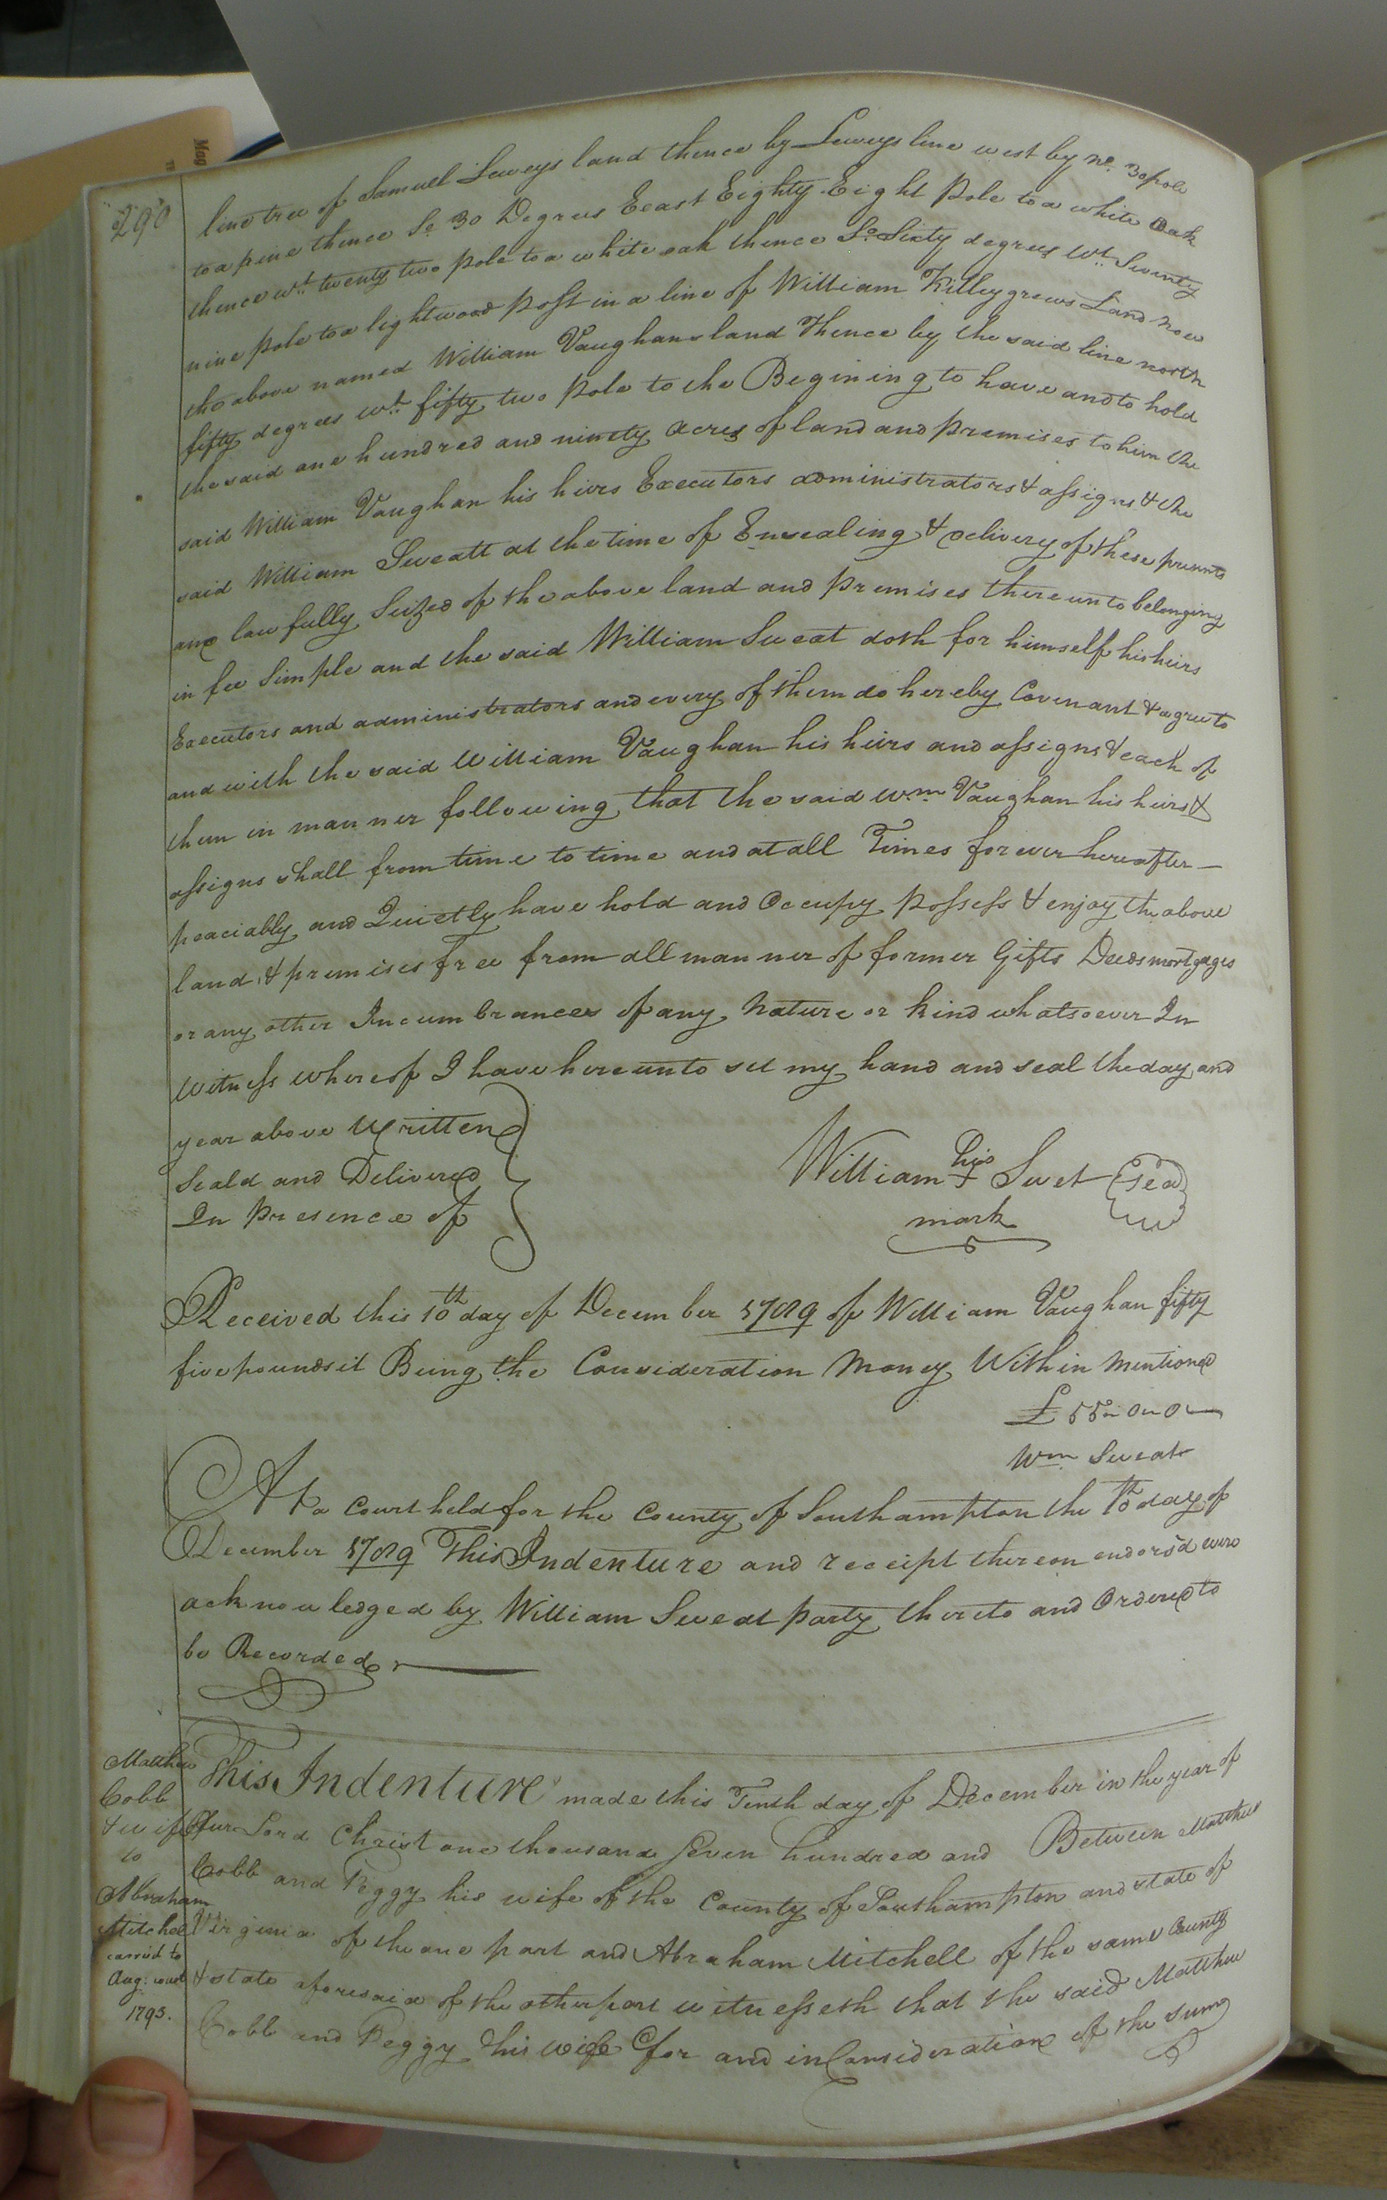 290
line tree of Samuel Seweys land thence by Seweys line west by no. 30 pole
to a pine thence So 30 Degrees Eeast Eighty Eight Pole to a white Oak
thence wt. twenty two pole to a white oak thence So. Sixty degrees Wt. Seventy
nine pole to a lightwood Post in a line of William Killeygrews Land now
the above named William Vaughans land Thence by the said line north
fifty degrees wt. fifty two Pole to the Begining to have and to hold
the said one hundred and ninety Acres of land and premises to him the
said William Vaughan his hiers Executors administrators & assigns & the
said William Sweatt at the time of Ensealing & delivery of these presents
am lawfully Seized of the above land and premises thereunto belonging
in fee Simple and the said William Sweat doth for himself his heirs
Executors and administrators and every of them do hereby Covenant & agree to
and with the said William Vaughan his heirs and assigns & each of
them in manner following that the said Wm. Vaughan his heirs &
assigns shall from time to time and at all Times for ever hereafter —
peaciably and Quietly have hold and Occupy Possess & enjoy the above
land & premises free from all manner of former Gifts Deeds mortgages
or any other Incumbrances of any Nature or kind whatsoever In
Witness whereof I have hereunto set my hand and seal the day and
year above Written
Seald and Delivered
In Presence of
William his + Swet
mark
Received this 10th day of December 1789 of William Vaughan fifty
five pounds it Being the Consideration Money Within Mentioned
£ 55 " 0 " 0
Wm. Sweat
At a Court held for the County of Southampton the 10th day of
December 1789 This Indenture and receipt thereon endors'd were
acknowledged by William Sweat party thereto and Ordered to
be Recorded
Matthew
Cobb
& wife
to
Abraham
Mitchell
carried to
Aug: court
1793.
This Indenture made this Tenth day of December in the year of
Our Lord Christ one thousand Seven hundred and Between Matthew
Cobb and Peggy his wife of the County of Southampton and state of
Virginia of the one part and Abraham Mitchell of the same County
& state aforesaid of the other part witnesseth that the said Matthew
Cobb and Peggy his wife for and in Consideration of the sum